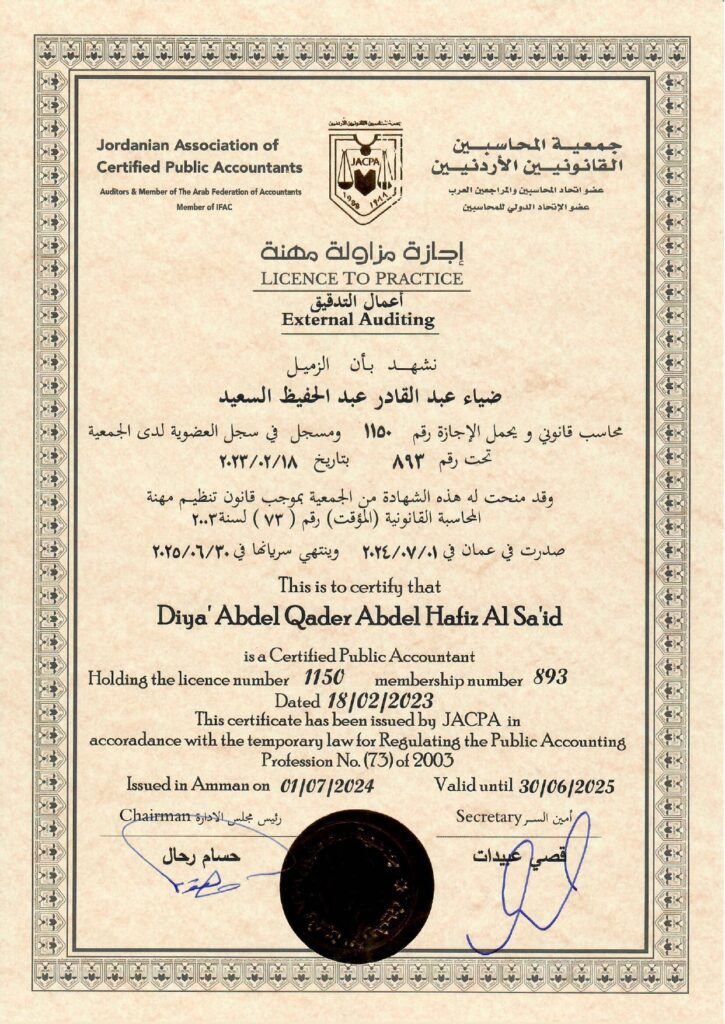 Jordanian Association of
Certified Public Accountants
Auditors & Member of The Arab Federation of Accountants
Member of IFAC
JACPA
جمعية المحاسبين
القانونيين الأردنيين
عضو اتحاد المحاسبين والمراجعين العرب
عضو الإتحاد الدولي للمحاسبين
إجازة مزاولة مهنة
LICENCE TO PRACTICE
أعمال التدقيق
External Auditing
نشهد بأن الزميل
ضياء عبد القادر عبد الحفيظ السعيد
محاسب قانوني و يحمل الإجازة رقم ١١٥٠ ومسجل في سجل العضوية لدى الجمعية
تحت رقم ٨٩٣ بتاريخ ٢٠٢٣/٠٢/١٨
وقد منحت له هذه الشهادة من الجمعية بموجب قانون تنظيم مهنة
المحاسبة القانونية (المؤقت) رقم ( ٧٣ ) لسنة ٢٠٠٣
صدرت في عمان في ٢٠٢٤/٠٧/٠١ وينتهي سريانها في ٢٠٢٥/٠٦/٣٠
This is to certify that
Diya' Abdel Qader Abdel Hafiz Al Sa'id
is a Certified Public Accountant
Holding the licence number 1150 membership number 893
Dated 18/02/2023
This certificate has been issued by JACPA in
accoradance with the temporary law for Regulating the Public Accounting
Profession No. (73) of 2003
Issued in Amman on 01/07/2024 Valid until 30/06/2025
Chairman رئيس مجلس الادارة
Secretary أمين السر
حسام رحال
قصي عبيدات